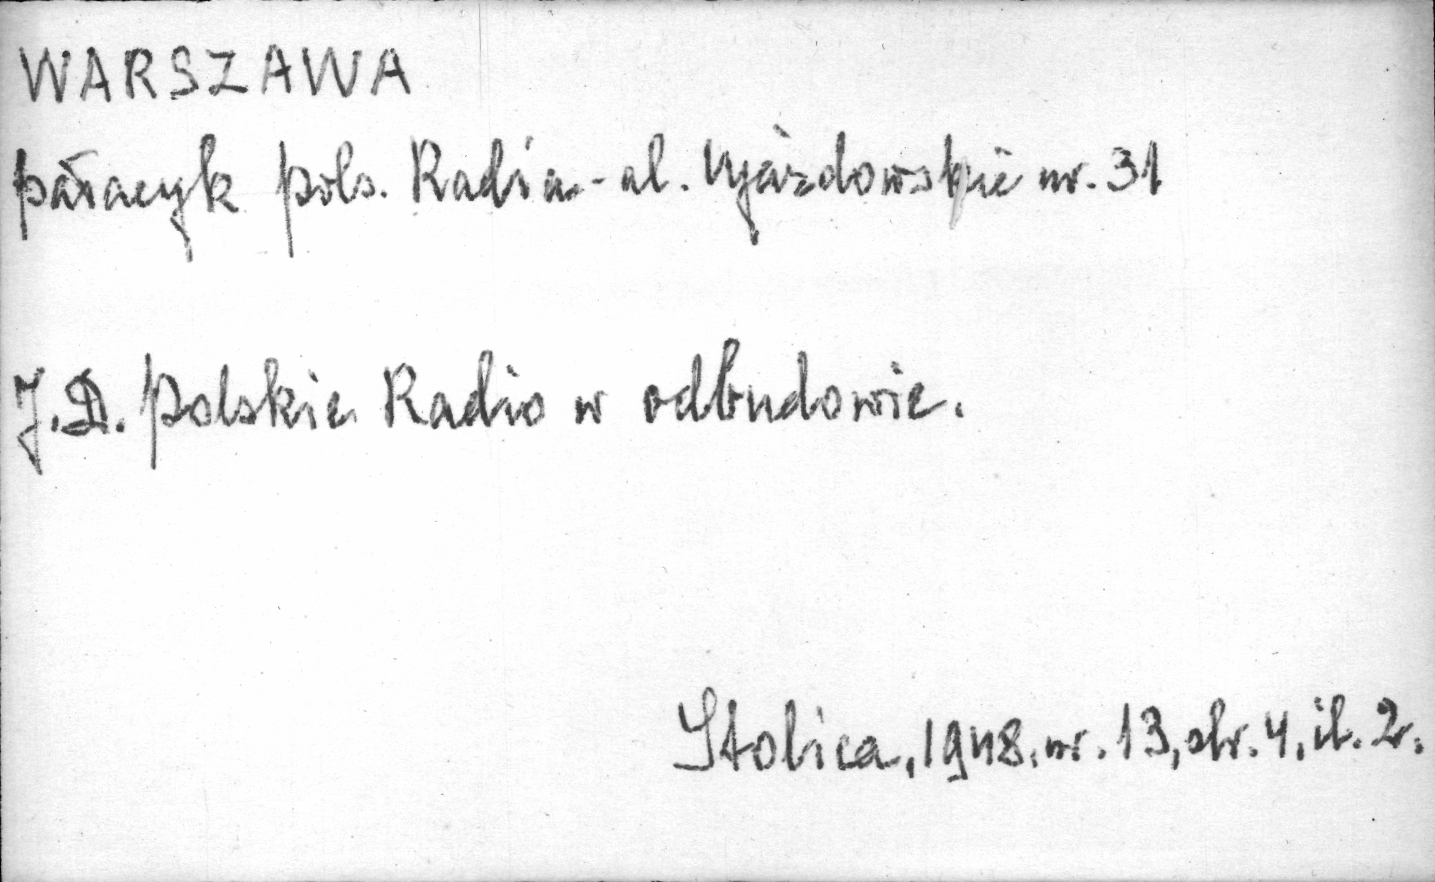 WARSZAWA
pałacyk pols. Radia - al. Ujazdowskie nr. 31
J.D. Polskie Radio w odbudowie.
Stolica, 1948, nr. 13, str. 4, il. 2.